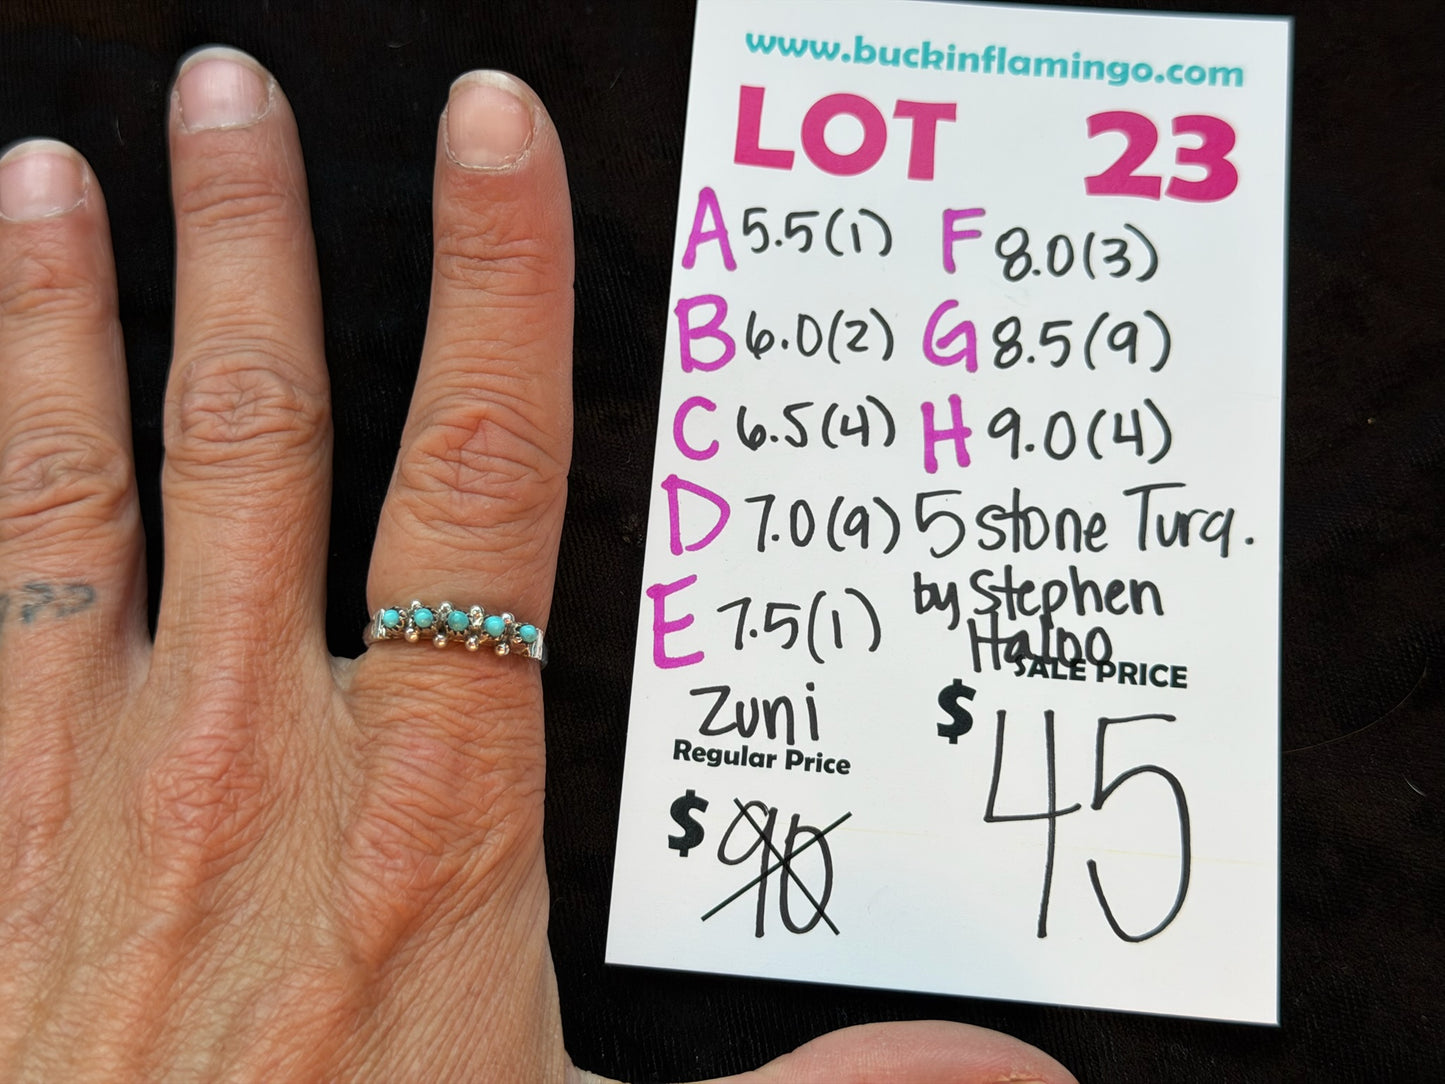 www.buckinflamingo.com
LOT 23
A 5.5(1) F 8.0(3)
B 6.0(2) G 8.5(9)
C 6.5(4) H 9.0(4)
D 7.0(9) 5 stone Turq.
E 7.5(1) by Stephen
Haloo
Zuni SALE PRICE
Regular Price $45
$90